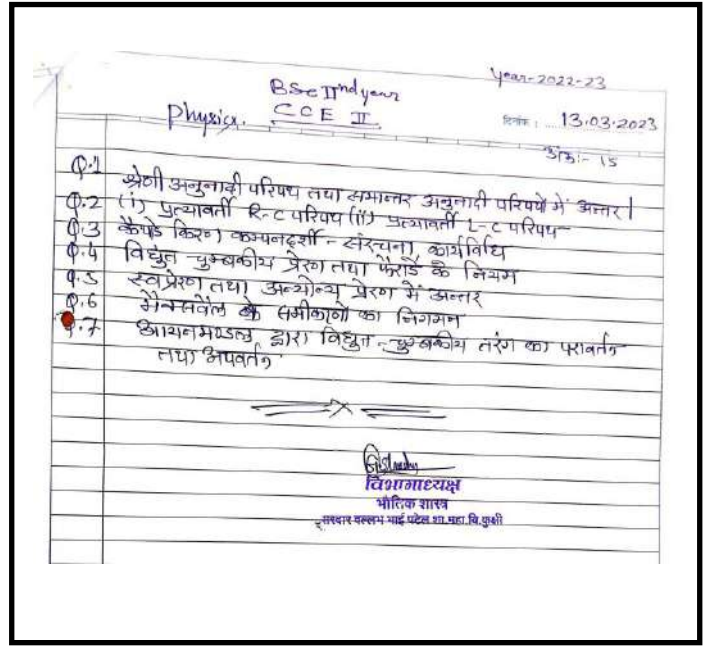 Year-2022-23
BSc IInd year
Physics. CCE II
दिनांक : 13.03.2023
अंक:- 15
Q.1 श्रेणी अनुनादी परिपथ तथा समान्तर अनुनादी परिपथों में अन्तर।
Q.2 (i) प्रत्यावर्ती R-C परिपथ (ii) प्रत्यावर्ती L-C परिपथ
Q.3 कैथोड किरण कम्पनदर्शी - संरचना, कार्यविधि
Q.4 विद्युत-चुम्बकीय प्रेरण तथा फैराडे के नियम
Q.5 स्वप्रेरण तथा अन्योन्य प्रेरण में अन्तर
Q.6 मैक्सवेल के समीकरणों का निगमन
Q.7 आयनमण्डल द्वारा विद्युत-चुम्बकीय तरंग का परावर्तन
तथा अपवर्तन
विभागाध्यक्ष
भौतिक शास्त्र
सरदार वल्लभ भाई पटेल शा.महा.वि.कुक्षी